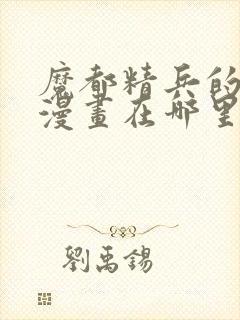 魔都精兵的
漫畫在哪里
劉禹錫